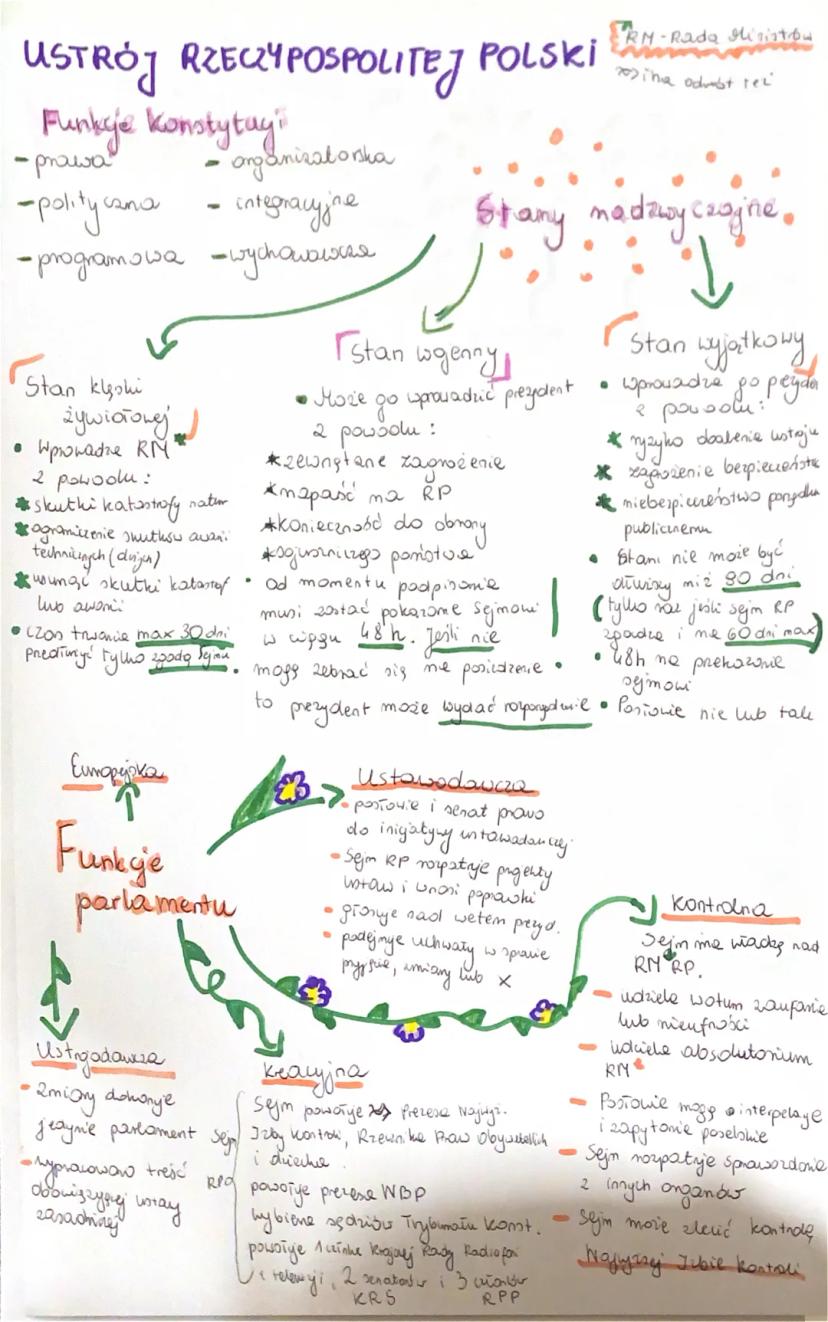 USTRÓJ RZECZYPOSPOLITEJ POLSKI
RM - Rada Ministrów
Funkcje Konstytucji
- prawa
- polityczna
- programowa
- organizatorska
- integracyjne
- wychowawcza
Stany nadzwyczajne
Stan klęski
żywiołowej
• Wprowadza RM
z powodu:
* skutki katastrofy natur
* ograniczenie skutków awarii
technicznych
* usunąć skutki katastrof
lub awarii
• Czas trwania max 30 dni
przedłużyć tylko zgodą Sejmu.
Stan wojenny
• Może go wprowadzić prezydent
z powodu:
* zewnętrzne zagrożenie
* napaść na RP
* Konieczność do obrony
* sojuszniczego państwa
• od momentu podpisania
musi zostać pokazane Sejmowi
w ciągu 48h. Jeśli nie
mogą zebrać się na posiedzenie •
to prezydent może wydać rozporządzenie
Stan wyjątkowy
• wprowadza go
z powodu:
* ryzyko obalenia ustroju
* zagrożenie bezpieczeństw
* niebezpieczeństwo porządku
publicznemu
• Stan nie może być
dłuższy niż 90 dni
(tylko raz jeśli sejm RP
zgadza i na 60 dni max)
• 48h na przekazanie
sejmowi
• Posłowie nie lub tak
Europejska
Funkcje
parlamentu
Ustawodawcza
• posłowie i senat prawo
do inicjatywy ustawodawczej
• Sejm RP rozpatruje projekty
ustaw i wnosi poprawki
• głosuje nad wetem prezyd.
• podejmuje uchwały w sprawie
przyjęcia, zmiany lub X
Kontrolna
Sejm ma władzę nad
RM RP.
- udziela wotum zaufania
lub nieufności
- udziela absolutorium
RM
- Posłowie mogą interpelacje
i zapytanie poselskie
- Sejm rozpatruje sprawozdania
z innych organów
- Sejm może zlecić kontrolę
Najwyższej Izbie Kontroli
Ustrojodawcza
- Zmiany dokonuje
jedynie parlament
- wypracowano treść
obowiązującej ustawy
zasadniczej
Kreacyjna
Sejm powołuje Prezesa Najwyż.
Izby Kontroli, Rzecznika Praw Obywatelskich
i dziecka.
powołuje prezesa NBP
wybiera sędziów Trybunału Konst.
powołuje członka Krajowej Rady Radiofon
i telewizji, 2 senatorów i 3 członków
KRS RPP